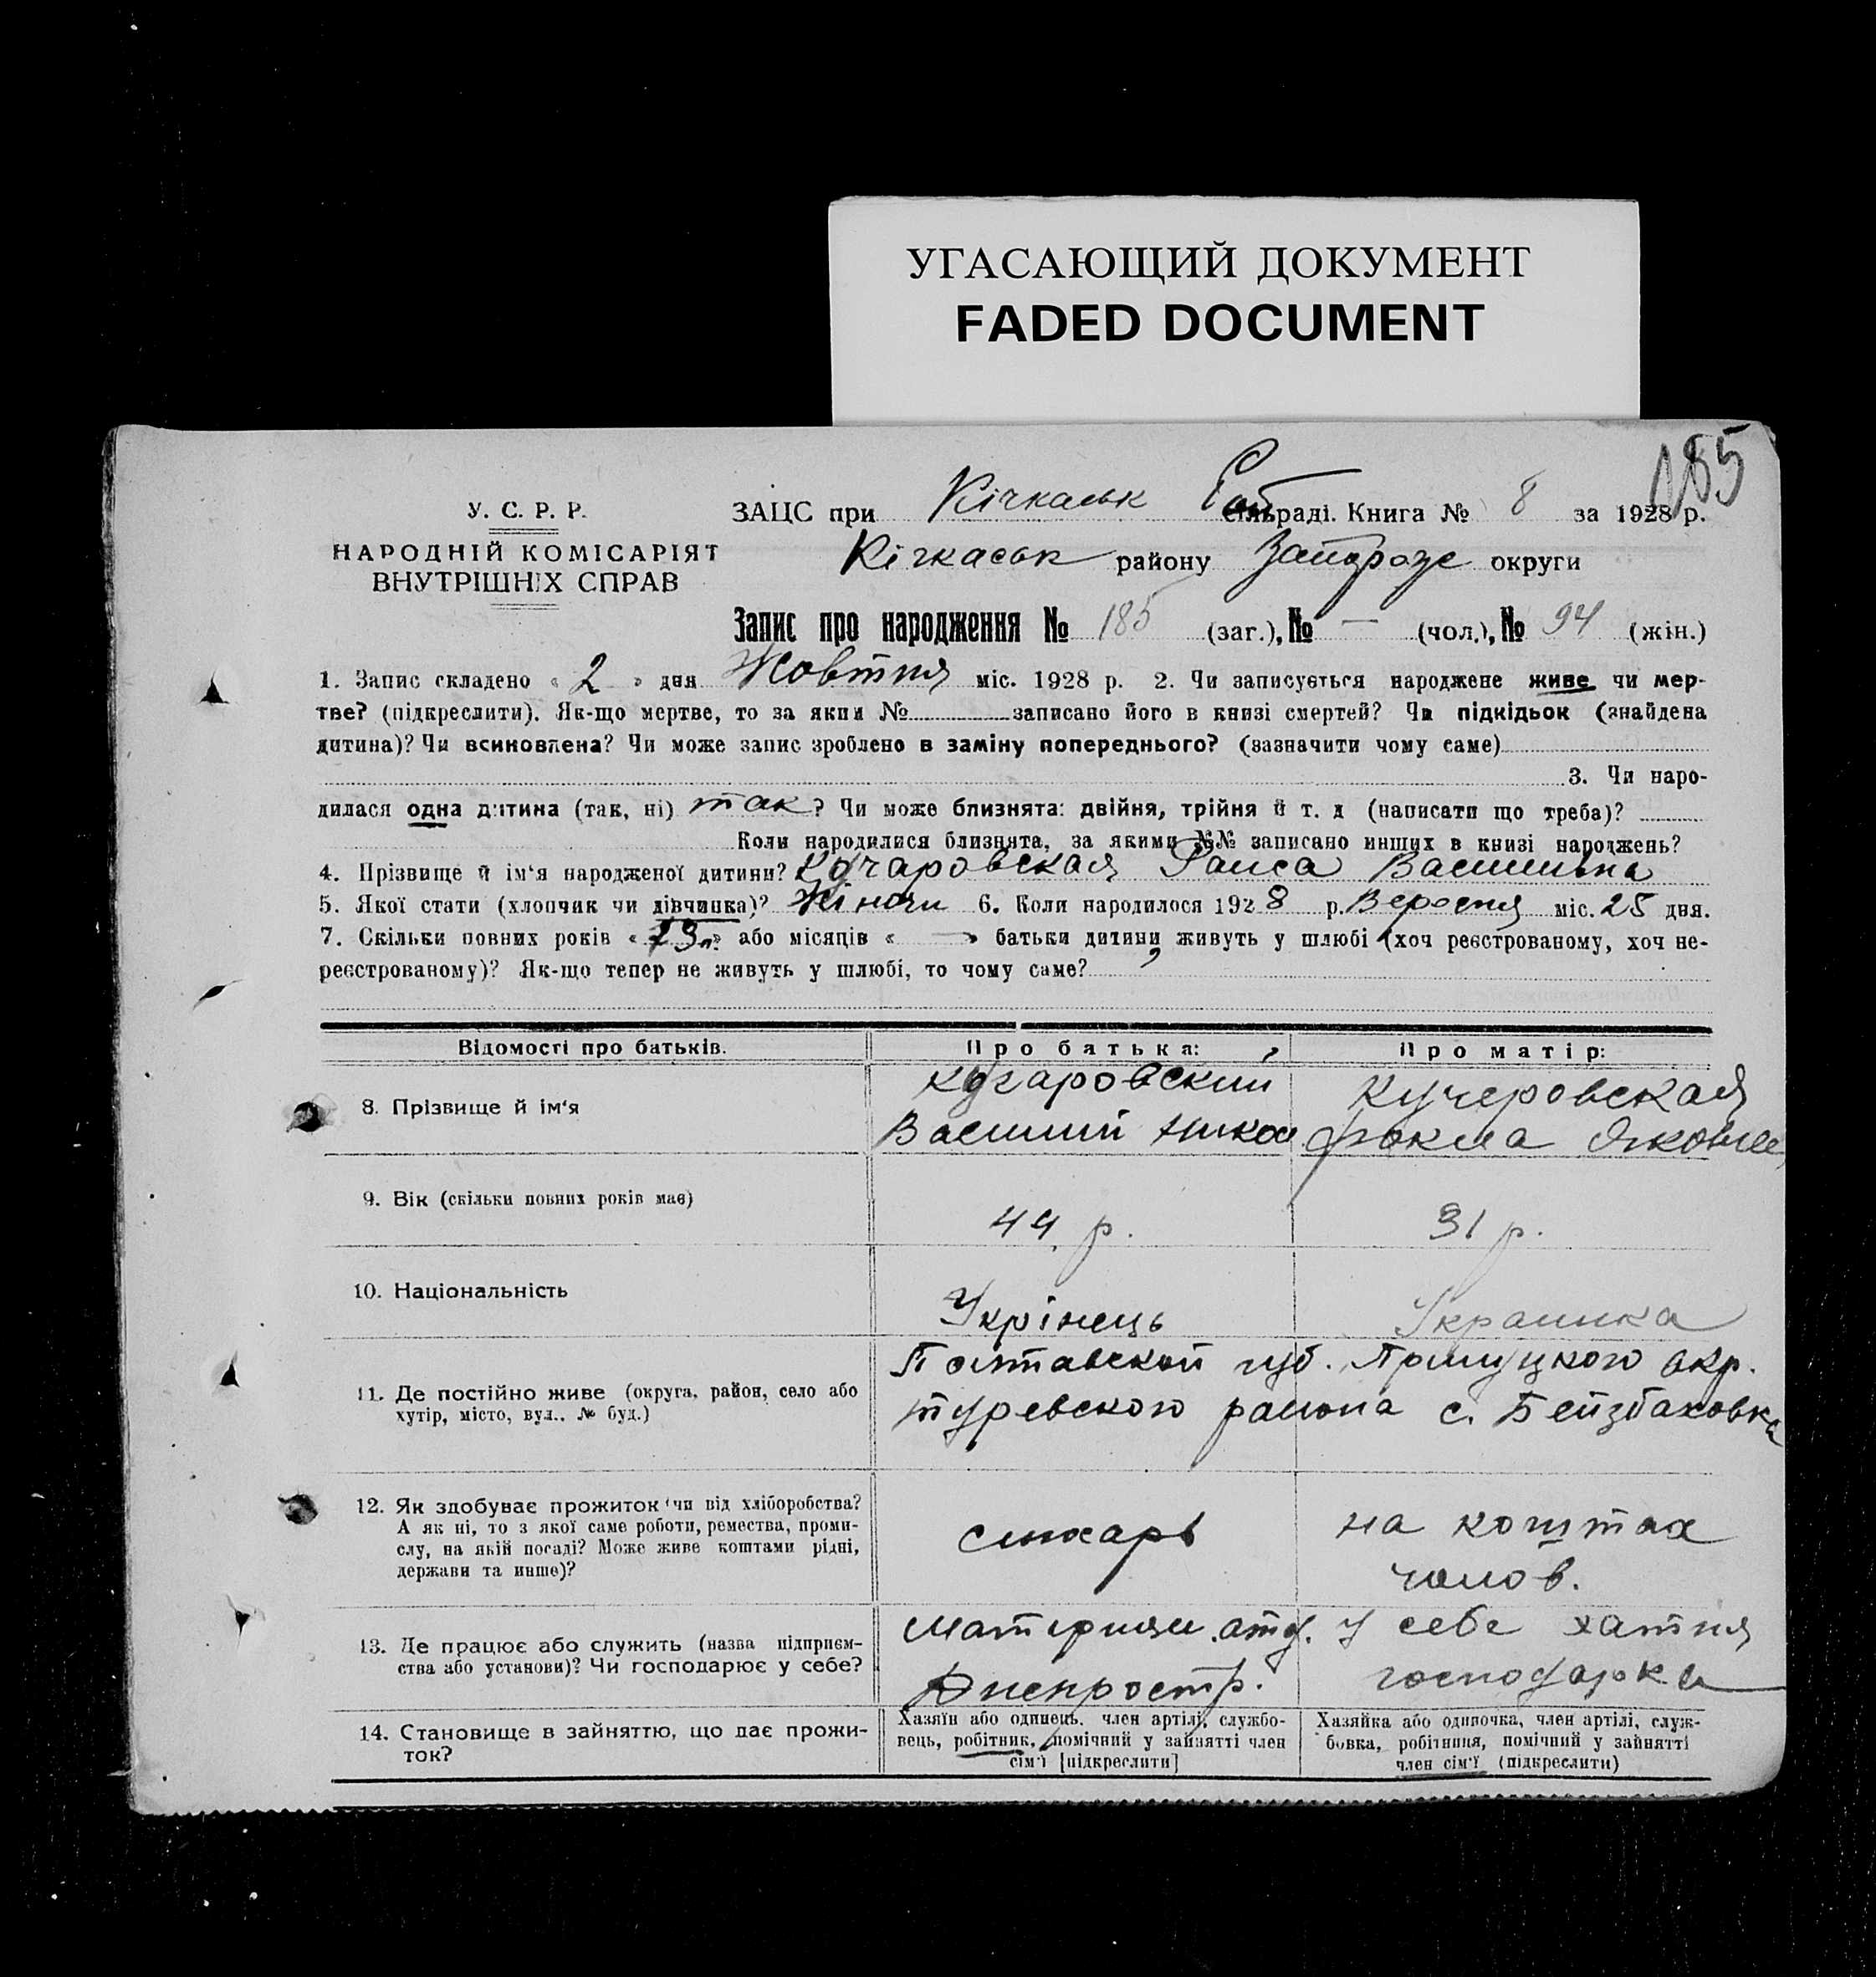 УГАСАЮЩИЙ ДОКУМЕНТ
FADED DOCUMENT
185
У. С. Р. Р.
НАРОДНІЙ КОМІСАРІЯТ
ВНУТРІШНІХ СПРАВ
ЗАЦС при Кічкаськ сільраді. Книга № 8 за 1928 р.
Кічкаськ району Запорозс округи
Запис про народження № 185 (заг.), № — (чол.), № 94 (жін.)
1. Запис складено « 2 » дня Жовтня міс. 1928 р. 2. Чи записується народжене живе чи мер-
тве? (підкреслити). Як-що мертве, то за яким № записано його в книзі смертей? Чи підкідьок (знайдена
дитина)? Чи всиновлена? Чи може запис зроблено в заміну попереднього? (зазначити чому саме)
3. Чи наро-
дилася одна дитина (так, ні) так ? Чи може близнята: двійня, трійня й т. д (написати що треба)?
Коли народилися близнята, за якими №№ записано инших в книзі народжень?
4. Прізвище й ім'я народженої дитини? Кучаровская Раиса Васильвна
5. Якої стати (хлопчик чи дівчинка)? Жіночи 6. Коли народилося 1928 р. Вересня міс. 25 дня.
7. Скільки повних років « 13 л. » або місяців « — » батьки дитини живуть у шлюбі (хоч реєстрованому, хоч не-
реєстрованому)? Як-що тепер не живуть у шлюбі, то чому саме?
Відомості про батьків.
Про батька:
Про матір:
8. Прізвище й ім'я
Кучаровский
Василий Никол
Кучеровская
Фокла Яковле
9. Вік (скільки повних років має)
44 р.
31 р.
10. Національність
Укрінець
Украинка
11. Де постійно живе (округа, район, село або
хутір, місто, вул.. № буд.)
Полтавской губ. Прилуцкого окр.
туревского района с.
12. Як здобуває прожиток чи від хліборобства?
А як ні, то з якої саме роботи, ремества, проми-
слу, на якій посаді? Може живе коштами рідні,
держави та инше)?
слюсарь
на коштах
чолов.
13. Де працює або служить (назва підприєм-
ства або установи)? Чи господарює у себе?
Материял. отд.
Днепростр.
У себе хатня
господарка
14. Становище в зайняттю, що дає прожи-
ток?
Хазяїн або одинець. член артілі, службо-
вець, робітник, помічний у зайнятті член
сім'ї [підкреслити]
Хазяйка або одиночка, член артілі, служ-
бовка, робітниця, помічний у зайнятті
член сім'ї (підкреслити)